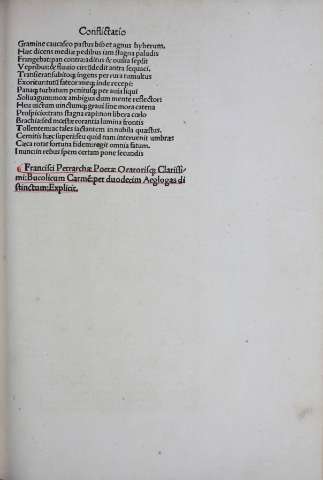 Conflictatio
Gramine caucaseo pastus bibet agnus hyberum.
Hæc dicens mediæ pedibus iam stagna paludis
Frangebat: pan contra ridens & ouilia sepsit
Vepribus: & fluuio dedit antra sequaci.
Transierant subitoq; ingens per rura tumultus
Exoritur: tuti fateor neq; inde recepi:
Panaq; turbatum penitusq; per auia liqui
Soliuagumq; mox ambigua dum mente reflectori
Heu uictum uinctumq; graui sine mora catena
Prospicio: trans stagna rapi non libera collo
Brachia: sed mœstæ orantia lumina frontis
Tollentem: ac tales iactantem in nubila quæstus.
Cernitis hæc superi: seu quid tam interuenit umbræ:
Cæca rotat fortuna fidem: regit omnia fatum.
I nunc: in rebus spem certam pone secundis
Francisci Petrarchæ Poetæ Oratorisq; Clarissi
mi: Bucolicum Carmē: per duodecim Aeglogas di
stinctum: Explicit.